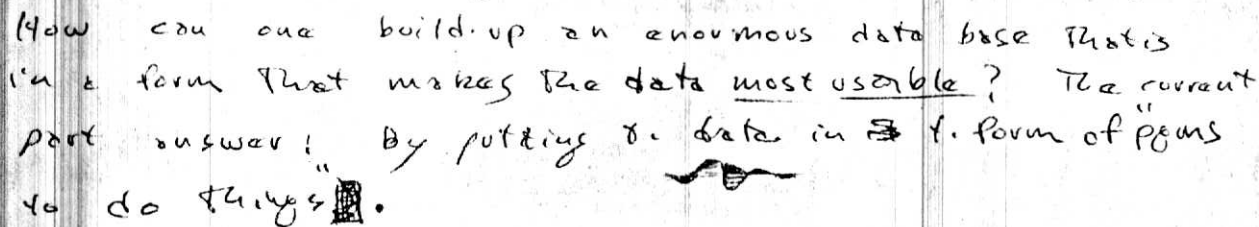 How can one build-up an enormous data base that is
in a form that makes the data most usable? The current
part answer: By putting t. data in t. form of "pgms
to do things".